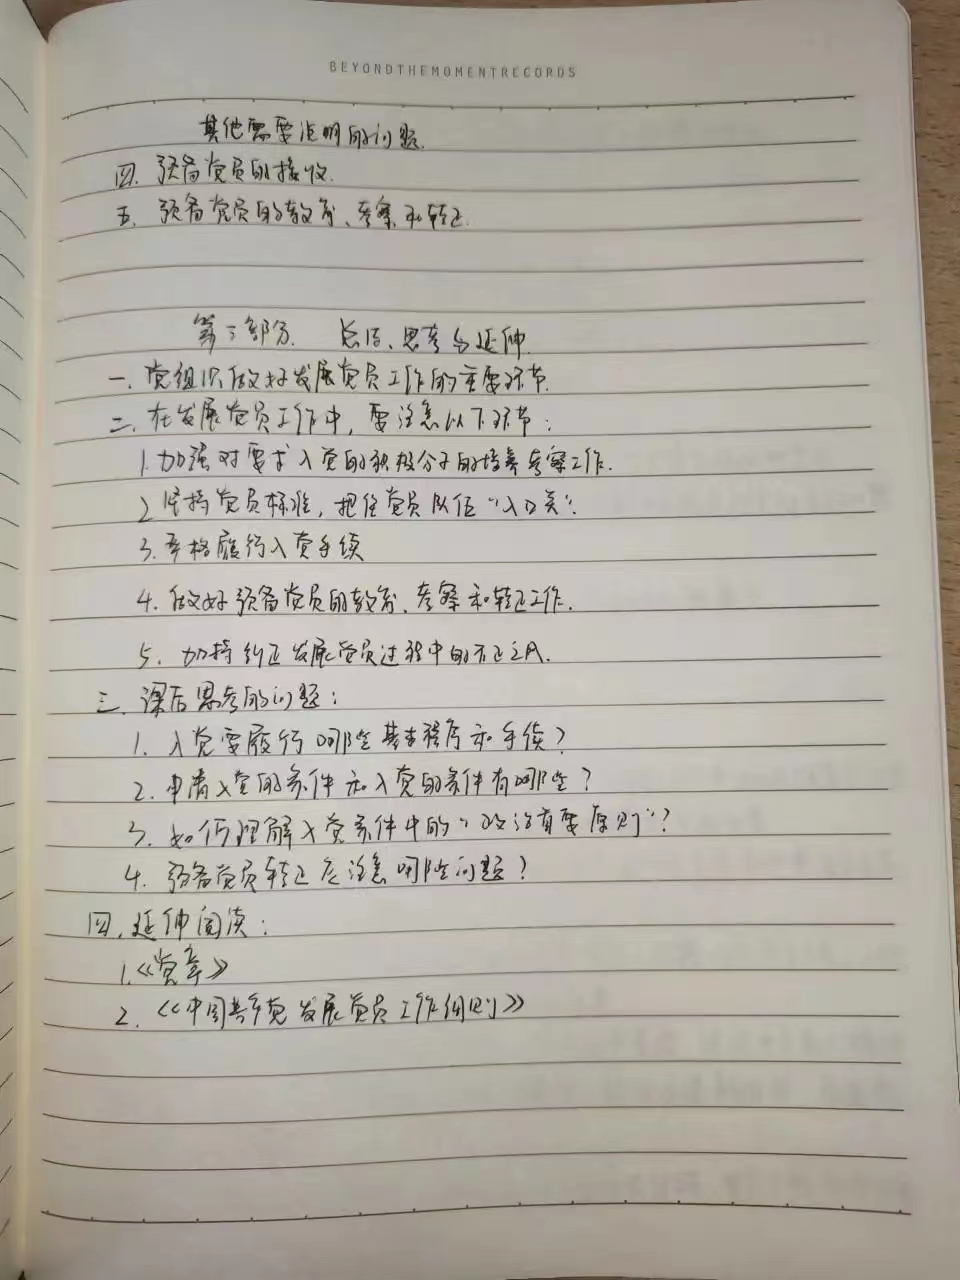 BEYONDTHEMOMENTRECORDS
其他需要说明的问题.
四. 预备党员的接收.
五. 预备党员的教育、考察和转正.
第三部分. 总结、思考与延伸.
一. 党组织做好发展党员工作的重要环节.
二. 在发展党员工作中, 要注意以下环节:
1. 加强对要求入党的积极分子的培养考察工作.
2. 坚持党员标准, 把住党员队伍“入口关”.
3. 严格履行入党手续
4. 做好预备党员的教育、考察和转正工作.
5. 加持纠正发展党员过程中的不正之风.
三. 课后思考的问题:
1. 入党要履行哪些基本程序和手续?
2. 申请入党的条件和入党的条件有哪些?
3. 如何理解入党条件中的“政治首要原则”?
4. 预备党员转正应注意哪些问题?
四. 延伸阅读:
1.《党章》
2. 《中国共产党发展党员工作细则》